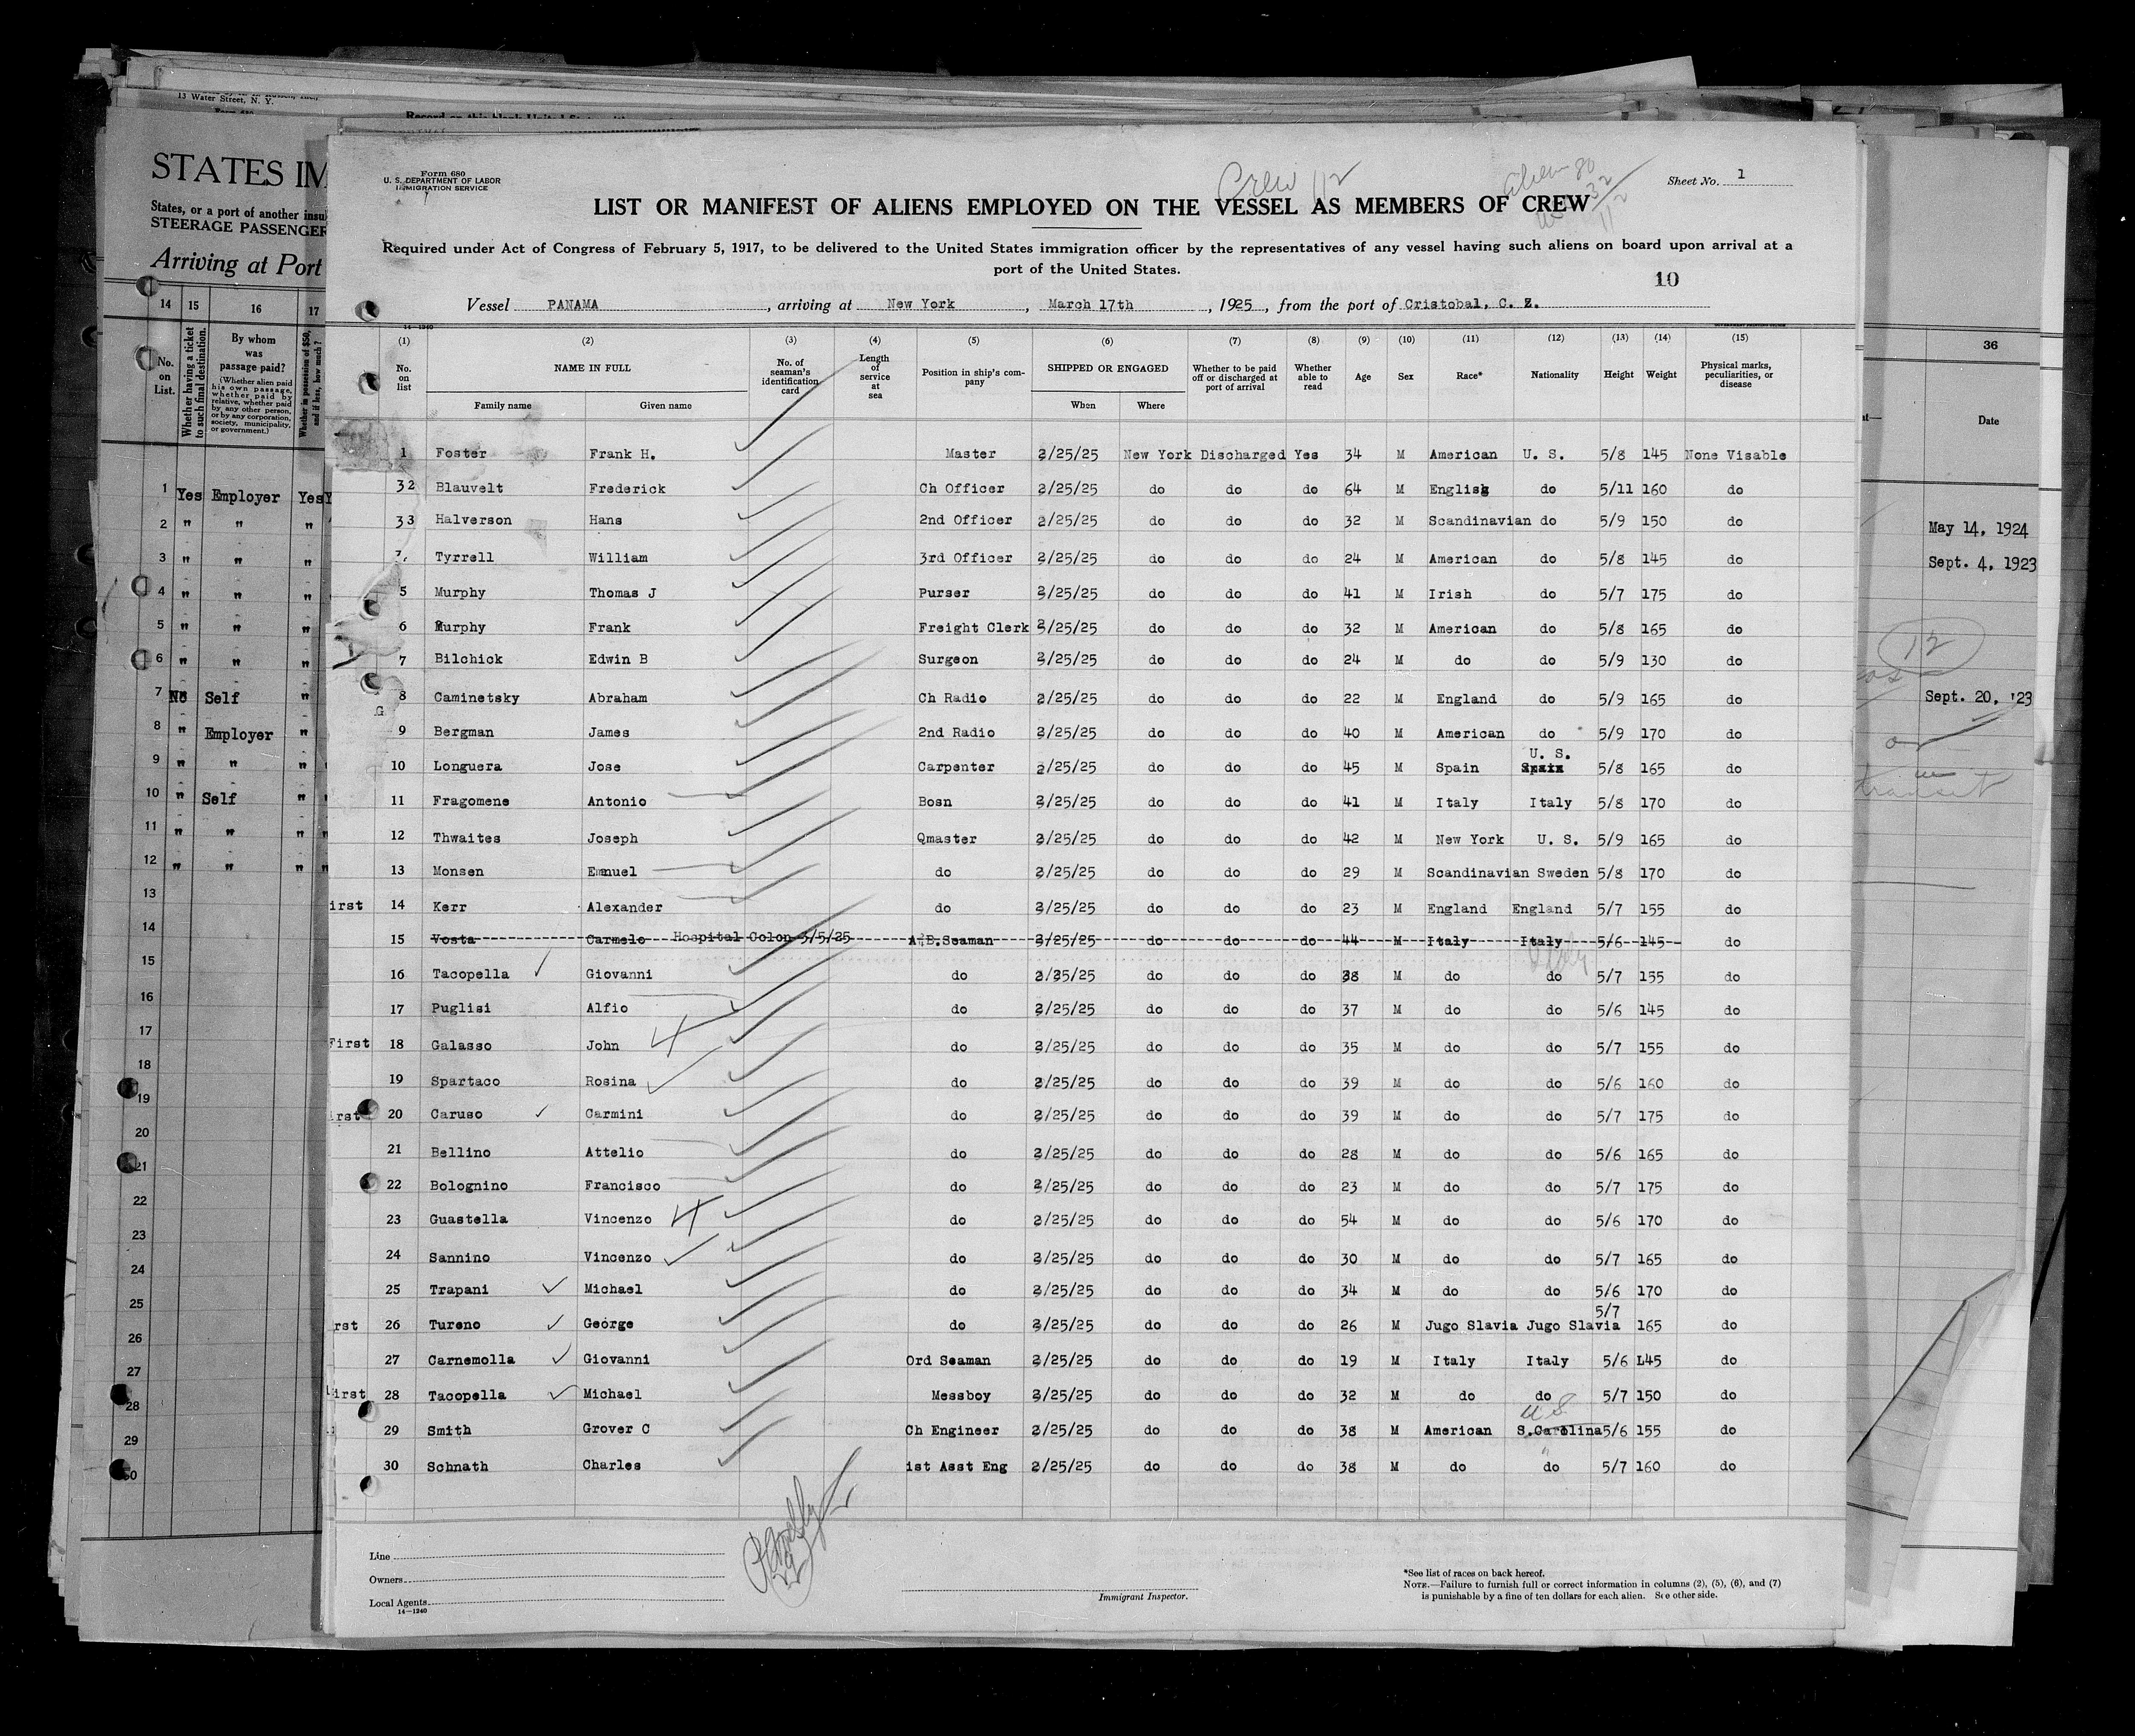 13 Water Street, N. Y.
STATES IM
States, or a port of another insul
STEERAGE PASSENGER
Arriving at Port
14 15 16 17
No. on List.
Whether having a ticket to such final destination.
By whom was passage paid?
(Whether alien paid his own passage, whether paid by relative, whether paid by any other person, or by any corporation, society, municipality, or government.)
Whether in possession of $50, and if less, how much?
1 Yes Employer Yes
2 " " "
3 " " "
4 " " "
5 " " "
6 " " "
7 No Self "
8 " Employer "
9 " " "
10 " Self "
11 " " "
12 " " "
13
14
15
16
17
18
19
20
21
22
23
24
25
26
27
28
29
30
Form 680
U. S. DEPARTMENT OF LABOR
IMMIGRATION SERVICE
Crew 112
Sheet No. 1
LIST OR MANIFEST OF ALIENS EMPLOYED ON THE VESSEL AS MEMBERS OF CREW
Required under Act of Congress of February 5, 1917, to be delivered to the United States immigration officer by the representatives of any vessel having such aliens on board upon arrival at a
port of the United States.
10
Vessel PANAMA, arriving at New York, March 17th, 1925, from the port of Cristobal, C. Z.
14-1240
(1) (2) (3) (4) (5) (6) (7) (8) (9) (10) (11) (12) (13) (14) (15)
No. on list
NAME IN FULL
Family name Given name
No. of seaman's identification card
Length of service at sea
Position in ship's company
SHIPPED OR ENGAGED
When Where
Whether to be paid off or discharged at port of arrival
Whether able to read
Age Sex Race* Nationality Height Weight
Physical marks, peculiarities, or disease
1 Foster Frank H. Master 2/25/25 New York Discharged Yes 34 M American U. S. 5/8 145 None Visable
32 Blauvelt Frederick Ch Officer 2/25/25 do do do 64 M English do 5/11 160 do
33 Halverson Hans 2nd Officer 2/25/25 do do do 32 M Scandinavian do 5/9 150 do
Tyrrell William 3rd Officer 2/25/25 do do do 24 M American do 5/8 145 do
5 Murphy Thomas J Purser 2/25/25 do do do 41 M Irish do 5/7 175 do
6 Murphy Frank Freight Clerk 2/25/25 do do do 32 M American do 5/8 165 do
7 Bilchick Edwin B Surgeon 2/25/25 do do do 24 M do do 5/9 130 do
8 Caminetsky Abraham Ch Radio 2/25/25 do do do 22 M England do 5/9 165 do
9 Bergman James 2nd Radio 2/25/25 do do do 40 M American do 5/9 170 do
U. S.
10 Longuera Jose Carpenter 2/25/25 do do do 45 M Spain Spain 5/8 165 do
11 Fragomene Antonio Bosn 2/25/25 do do do 41 M Italy Italy 5/8 170 do
12 Thwaites Joseph Qmaster 2/25/25 do do do 42 M New York U. S. 5/9 165 do
13 Monsen Emnuel do 2/25/25 do do do 29 M Scandinavian Sweden 5/8 170 do
irst 14 Kerr Alexander do 2/25/25 do do do 23 M England England 5/7 155 do
15 Vosta Carmelo Hospital Colon 3/5/25 A.B.Seaman 2/25/25 do do do 44 M Italy Italy 5/6 145 do
Italy
16 Tacopella Giovanni do 2/25/25 do do do 38 M do do 5/7 155 do
17 Puglisi Alfio do 2/25/25 do do do 37 M do do 5/6 145 do
First 18 Galasso John do 2/25/25 do do do 35 M do do 5/7 155 do
19 Spartaco Rosina do 2/25/25 do do do 39 M do do 5/6 160 do
irst 20 Caruso Carmini do 2/25/25 do do do 39 M do do 5/7 175 do
21 Bellino Attelio do 2/25/25 do do do 28 M do do 5/6 165 do
22 Bolognino Francisco do 2/25/25 do do do 23 M do do 5/7 175 do
23 Guastella Vincenzo do 2/25/25 do do do 54 M do do 5/6 170 do
24 Sannino Vincenzo do 2/25/25 do do do 30 M do do 5/7 165 do
25 Trapani Michael do 2/25/25 do do do 34 M do do 5/6 170 do
5/7
rst 26 Tureno George do 2/25/25 do do do 26 M Jugo Slavia Jugo Slavia 165 do
27 Carnemolla Giovanni Ord Seaman 2/25/25 do do do 19 M Italy Italy 5/6 L45 do
irst 28 Tacopella Michael Messboy 2/25/25 do do do 32 M do do 5/7 150 do
U S
29 Smith Grover C Ch Engineer 2/25/25 do do do 38 M American S.Carolina 5/6 155 do
"
30 Schnath Charles 1st Asst Eng 2/25/25 do do do 38 M do do 5/7 160 do
Line
Owners
Local Agents
14-1240
Immigrant Inspector.
*See list of races on back hereof.
NOTE.—Failure to furnish full or correct information in columns (2), (5), (6), and (7)
is punishable by a fine of ten dollars for each alien. See other side.
36
Date
May 14, 1924
Sept. 4, 1923
12
Sept. 20, '23
transit